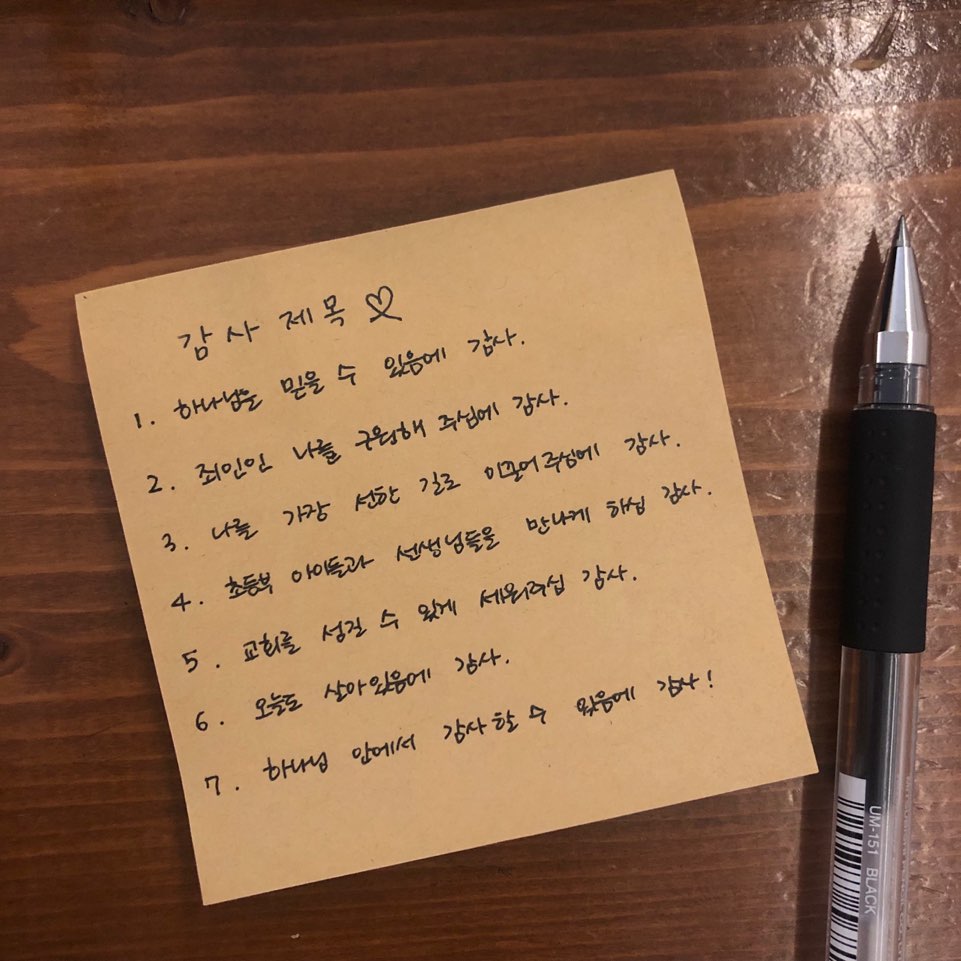 감사제목♡
1. 하나님을 믿을 수 있음에 감사.
2. 죄인인 나를 구원해 주심에 감사.
3. 나를 가장 선한 길로 이끌어주심에 감사.
4. 초등부 아이들과 선생님들을 만나게 하심 감사.
5. 교회를 섬길 수 있게 세워주심 감사.
6. 오늘도 살아있음에 감사.
7. 하나님 앞에서 감사할 수 있음에 감사!
UM-151 BLACK